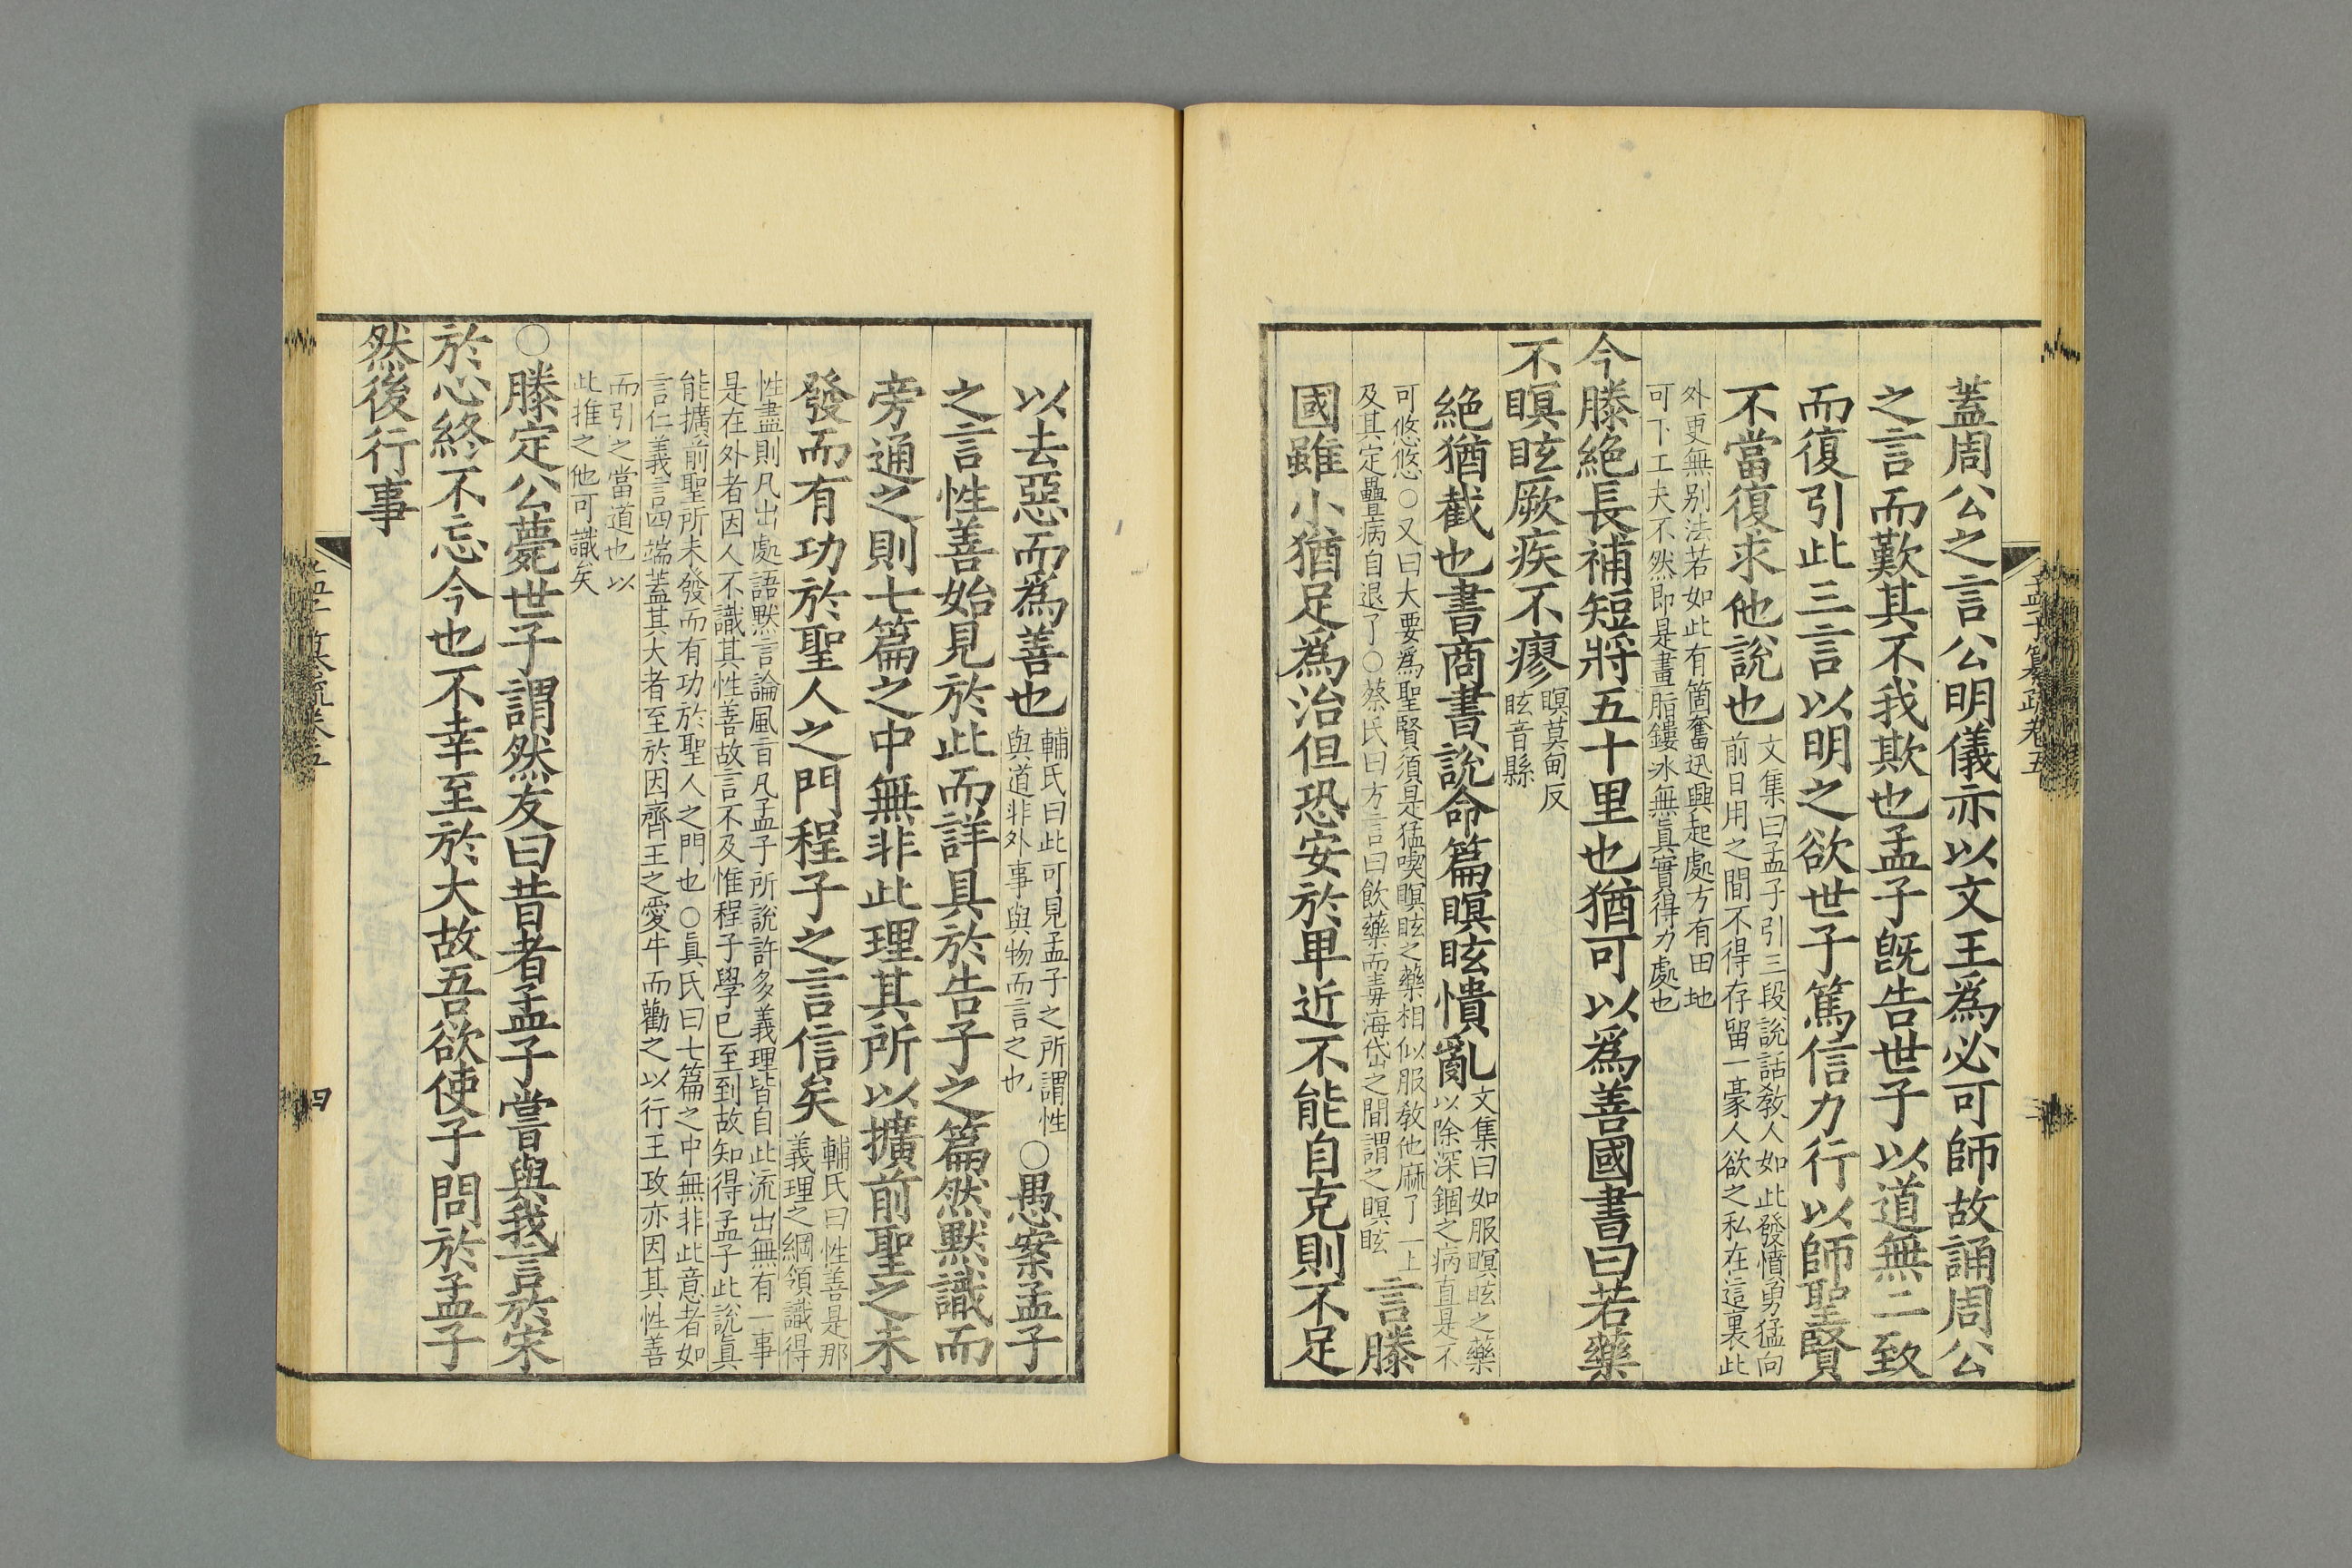 孟子纂疏卷五
蓋周公之言公明儀亦以文王爲必可師故誦周公
之言而歎其不我欺也孟子旣告世子以道無二致
而復引此三言以明之欲世子篤信力行以師聖賢
不當復求他說也
文集曰孟子引三段說話敎人如此發憤勇猛向
前日用之閒不得存留一豪人欲之私在這裏此
外更無别法若如此有箇奮迅興起處方有田地
可下工夫不然卽是畫脂鏤冰無眞實得力處也
今滕絶長補短將五十里也猶可以爲善國書曰若藥
不瞑眩厥疾不瘳
瞑莫甸反
眩音縣
絶猶截也書商書說命篇瞑眩憒亂
文集曰如服瞑眩之藥
以除深錮之病直是不
可悠悠○又曰大要爲聖賢須是猛喫瞑眩之藥相似服敎他麻了一上
及其定疊病自退了○蔡氏曰方言曰飮藥而毒海岱之閒謂之瞑眩
言滕
國雖小猶足爲治但恐安於卑近不能自克則不足
以去惡而爲善也
輔氏曰此可見孟子之所謂性
與道非外事與物而言之也
○愚案孟子
之言性善始見於此而詳具於告子之篇然默識而
旁通之則七篇之中無非此理其所以擴前聖之未
發而有功於聖人之門程子之言信矣
輔氏曰性善是那
義理之綱領識得
性盡則凡出處語默言論風旨凡孟子所說許多義理皆自此流出無有一事
是在外者因人不識其性善故言不及惟程子學已至到故知得孟子此說眞
能擴前聖所未發而有功於聖人之門也○眞氏曰七篇之中無非此意者如
言仁義言四端蓋其大者至於因齊王之愛牛而勸之以行王政亦因其性善
而引之當道也以
此推之他可識矣
○滕定公薨世子謂然友曰昔者孟子嘗與我言於宋
於心終不忘今也不幸至於大故吾欲使子問於孟子
然後行事
孟子纂疏卷五
四